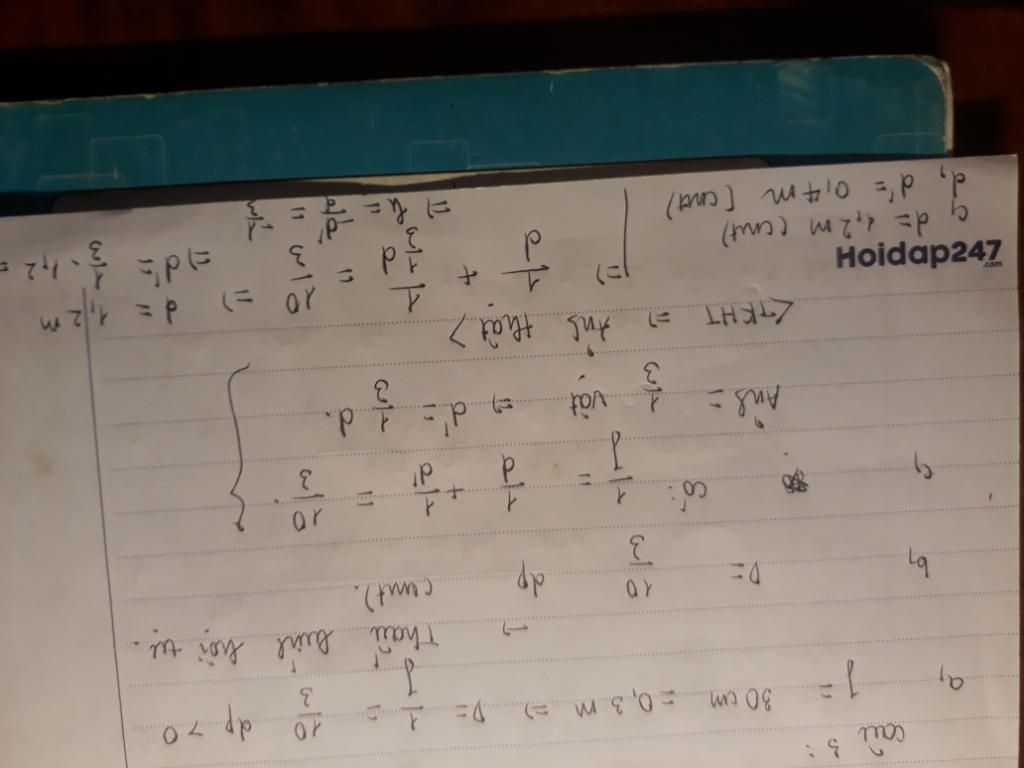 câu 3:
a, f = 30 cm = 0,3 m => D = 1/f = 10/3 dp > 0
-> Thấu kính hội tụ.
b, D = 10/3 dp (cmt).
c, có: 1/f = 1/d + 1/d' = 10/3.
Ảnh = 1/3 vật => d' = 1/3 d.
<TKHT => Ảnh thật>
=> 1/d + 1/(1/3 d) = 10/3 => d = 1,2 m => d' = 1/3 . 1,2 =
c, d = 1,2 m (cmt)
d, d' = 0,4 m (cmt)
=> k = -d'/d = -1/3
Hoidap247
.com